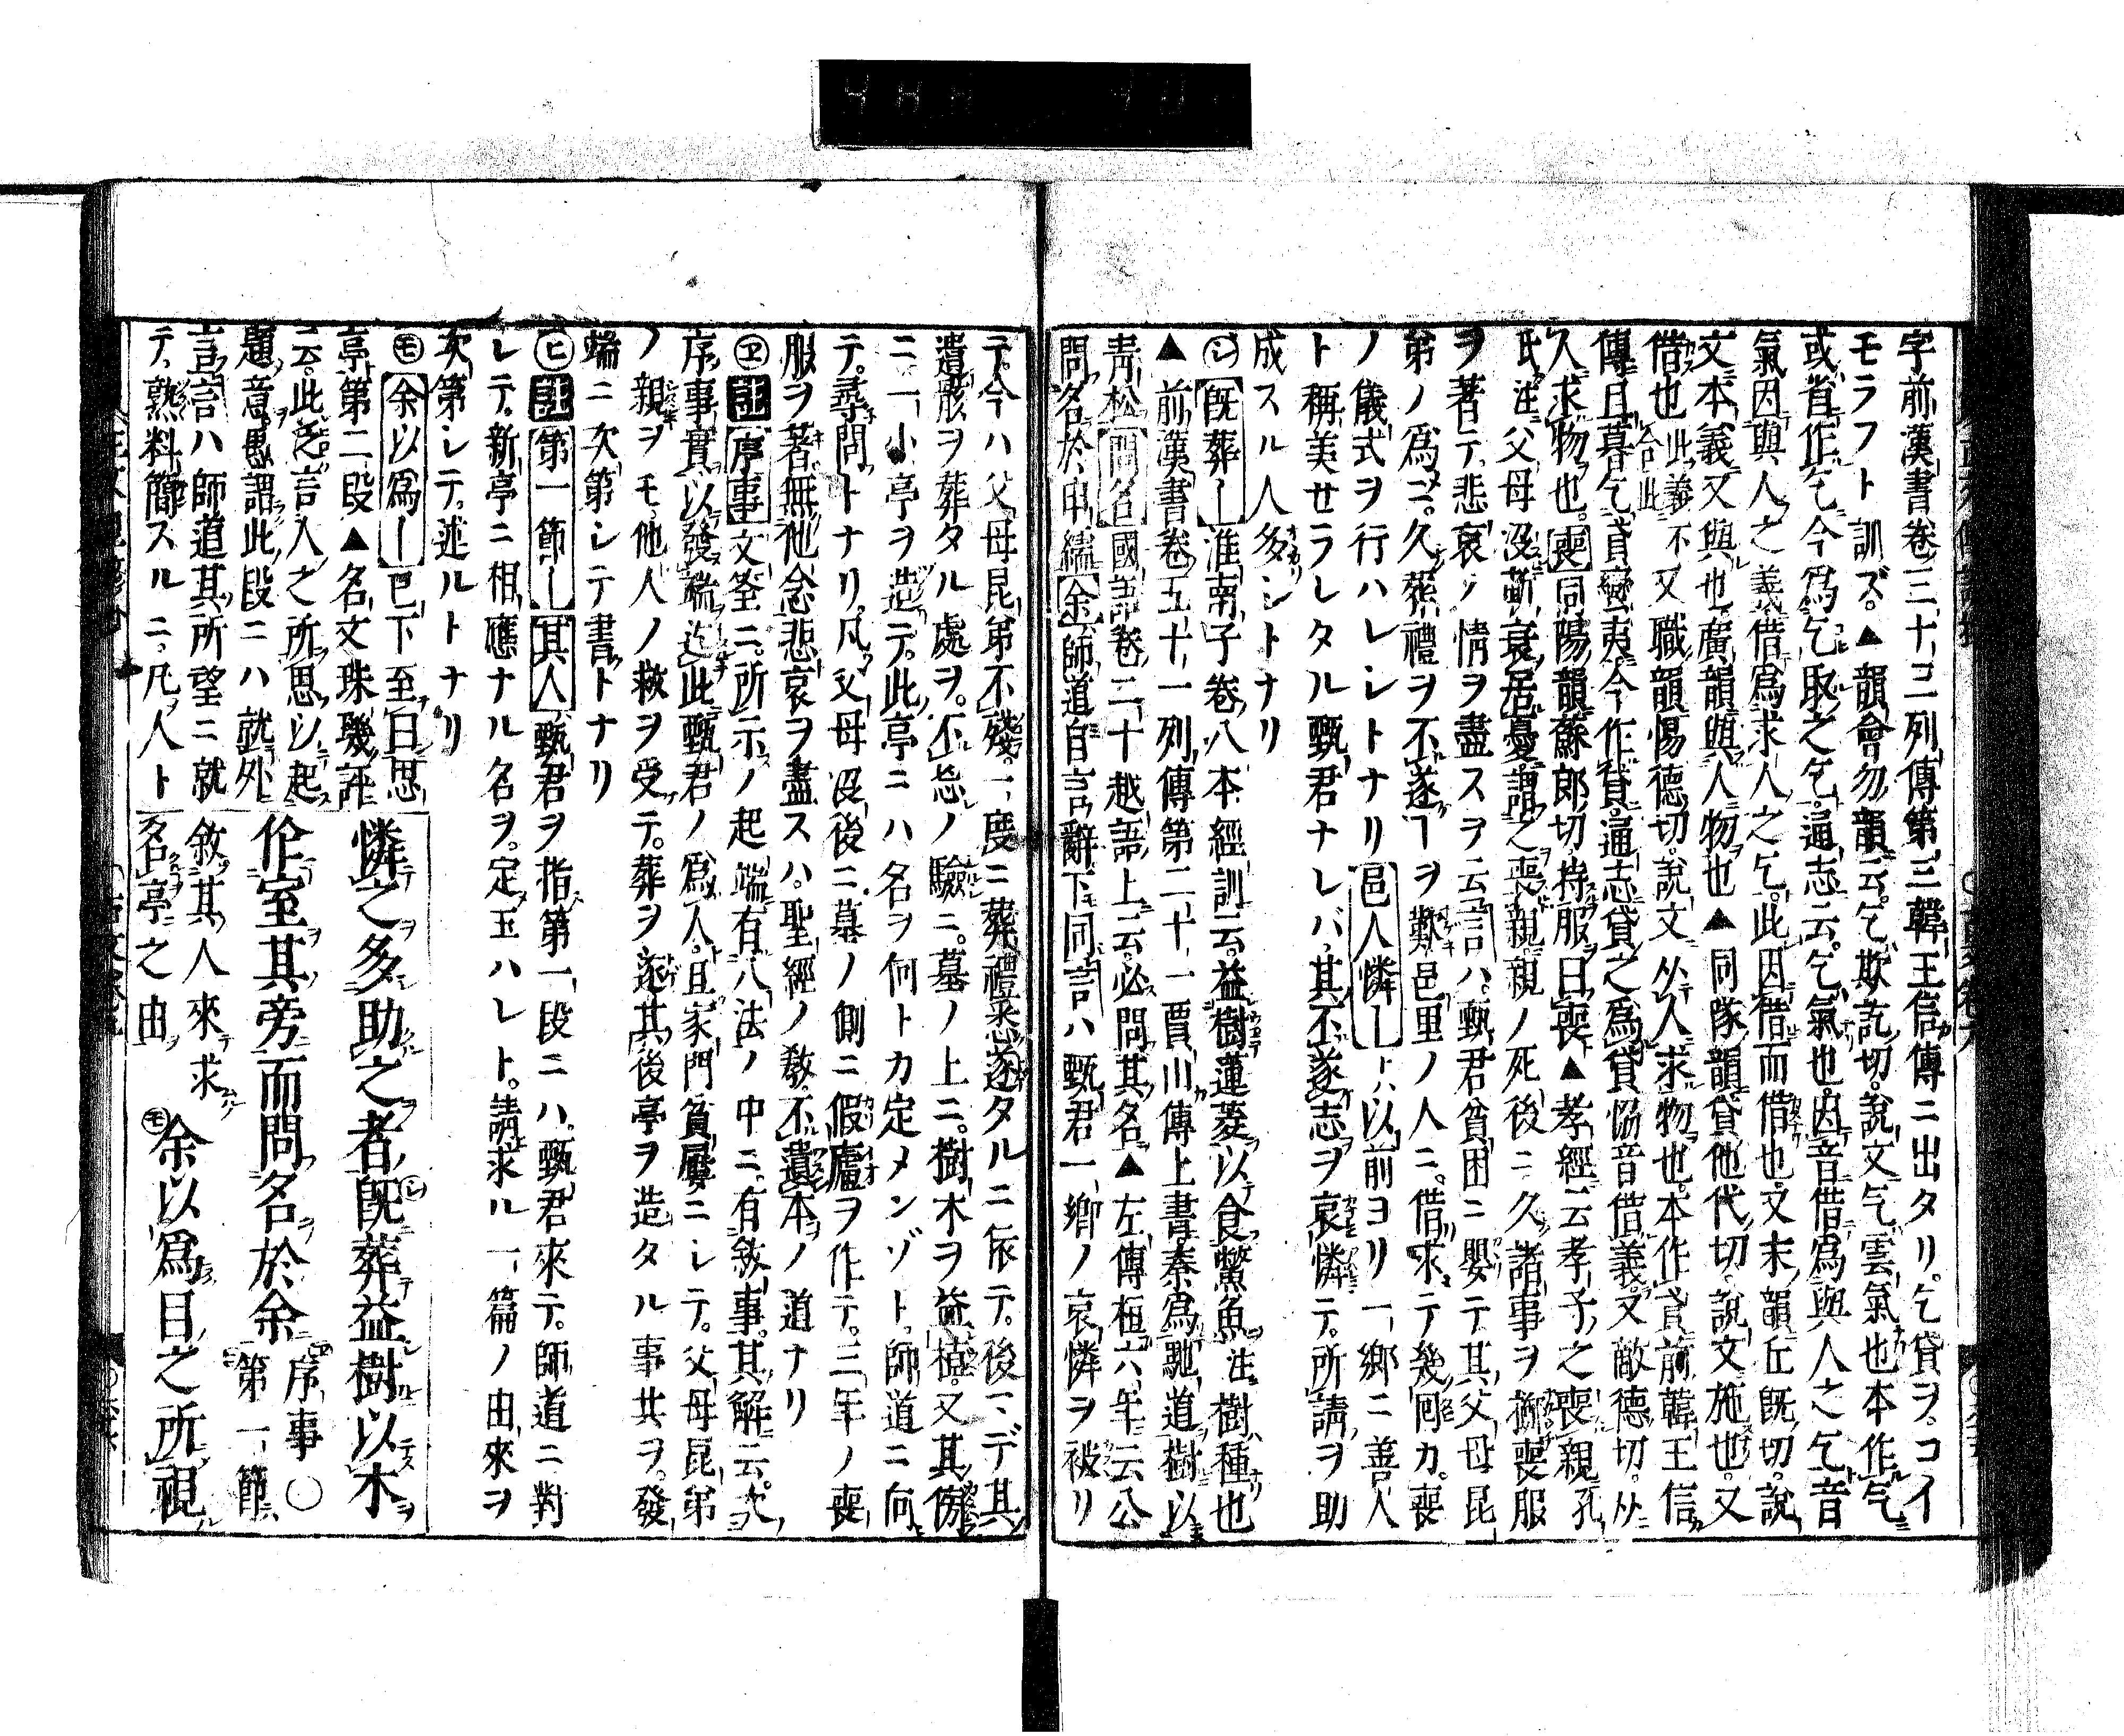 字前漢書卷三十三列傳第三韓王信傳ニ出タリ。乞貸ヲ。コイ
モラフト訓ズ。▲韻會勿韻云。乞欺訖切。說文气雲氣也本作气
或省作乞今爲乞取之乞。通志云。乞氣也因音借爲與人之乞音
氣因與人之義借爲求人之乞。此因借而借也又末韻丘旣切。說
文本義又與也廣韻與人物也▲同隊韻貸他代切。說文施也。又
借也此義不合此又職韻惕德切。說文从人求物也本作貣前韓王信
傳旦暮乞貣蠻夷今作貸。通志貸之爲貸恊音借義。又敵德切。从
人求物也。喪同陽韻蘇郎切。持服曰喪▲孝經云孝子之喪親孔
氏注父母沒斬衰居憂謂之喪親親ノ死後ニ久諸事ヲ
ヲ著テ悲哀ノ情ヲ盡スヲ云言ハ甄君貧困ニ嬰テ其父母昆
弟ノ爲ニ。久葬禮ヲ不遂ヿヲ歎邑里ノ人ニ。借求テ幾回カ。喪
ノ儀式ヲ行ハレシトナリ邑人憐―ト以前ヨリ一鄉ニ善人
ト稱美せラレタル甄君ナレバ其不遂志ヲ哀憐テ。所請ヲ助
成スル人多シトナリ
㋛旣葬―淮南子卷八本經訓云。益樹蓮菱以食鱉魚注樹種也
▲前漢書卷五十一列傳第二十一賈山傳上書秦爲馳道樹以
靑松問名國語卷二十越語上云。必問其名▲左傳桓六年云公
問名於申繻余師道自言辭下同言ハ甄君一鄉ノ哀憐ヲ被リ
テ。今ハ父母昆弟不殘。一度ニ葬禮悉遂タルニ依テ。後マデ其
遺骸ヲ葬タル處ヲ。不忘ノ驗ニ。墓ノ上ニ。樹木ヲ益植。又其傍
ニ一小亭ヲ造テ。此亭ニハ名ヲ何トカ定メンゾト師道ニ向
テ。尋問トナリ。凡父母沒後ニ墓ノ側ニ假廬ヲ作テ。三年ノ喪
服ヲ著無他念悲哀ヲ盡スハ。聖經ノ敎不遺本ノ道ナリ
㋓註序事文筌ニ。所示ノ起端有八法ノ中ニ有敘事。其解云。次
序事實以發端迄此甄君ノ爲人。且家門貧屢ニシテ。父母昆弟
ノ親ヲモ。他人ノ救ヲ受テ。葬ヲ遂其後亭ヲ造タル事共ヲ。發
端ニ次第シテ書トナリ
㋪註第一節―其人甄君ヲ指第一段ニハ甄君來テ。師道ニ對
シテ。新亭ニ相應ナル名ヲ。定玉ハレト。請求ル一篇ノ由來ヲ
次第シテ。述ルトナリ
㋲余以爲―已下至曰思
亭第二段▲名文珠璣評
云。此迄言人之所思以起
題意。愚謂此段ニハ就外
言言ハ師道其所望ニ就
テ。熟料簡スルニ。凡人ト
憐之多助之者㋛旣葬益樹以木
作室其旁而問名於余序事○第一節
敘其人來求名亭之由㋲余以爲目之所視